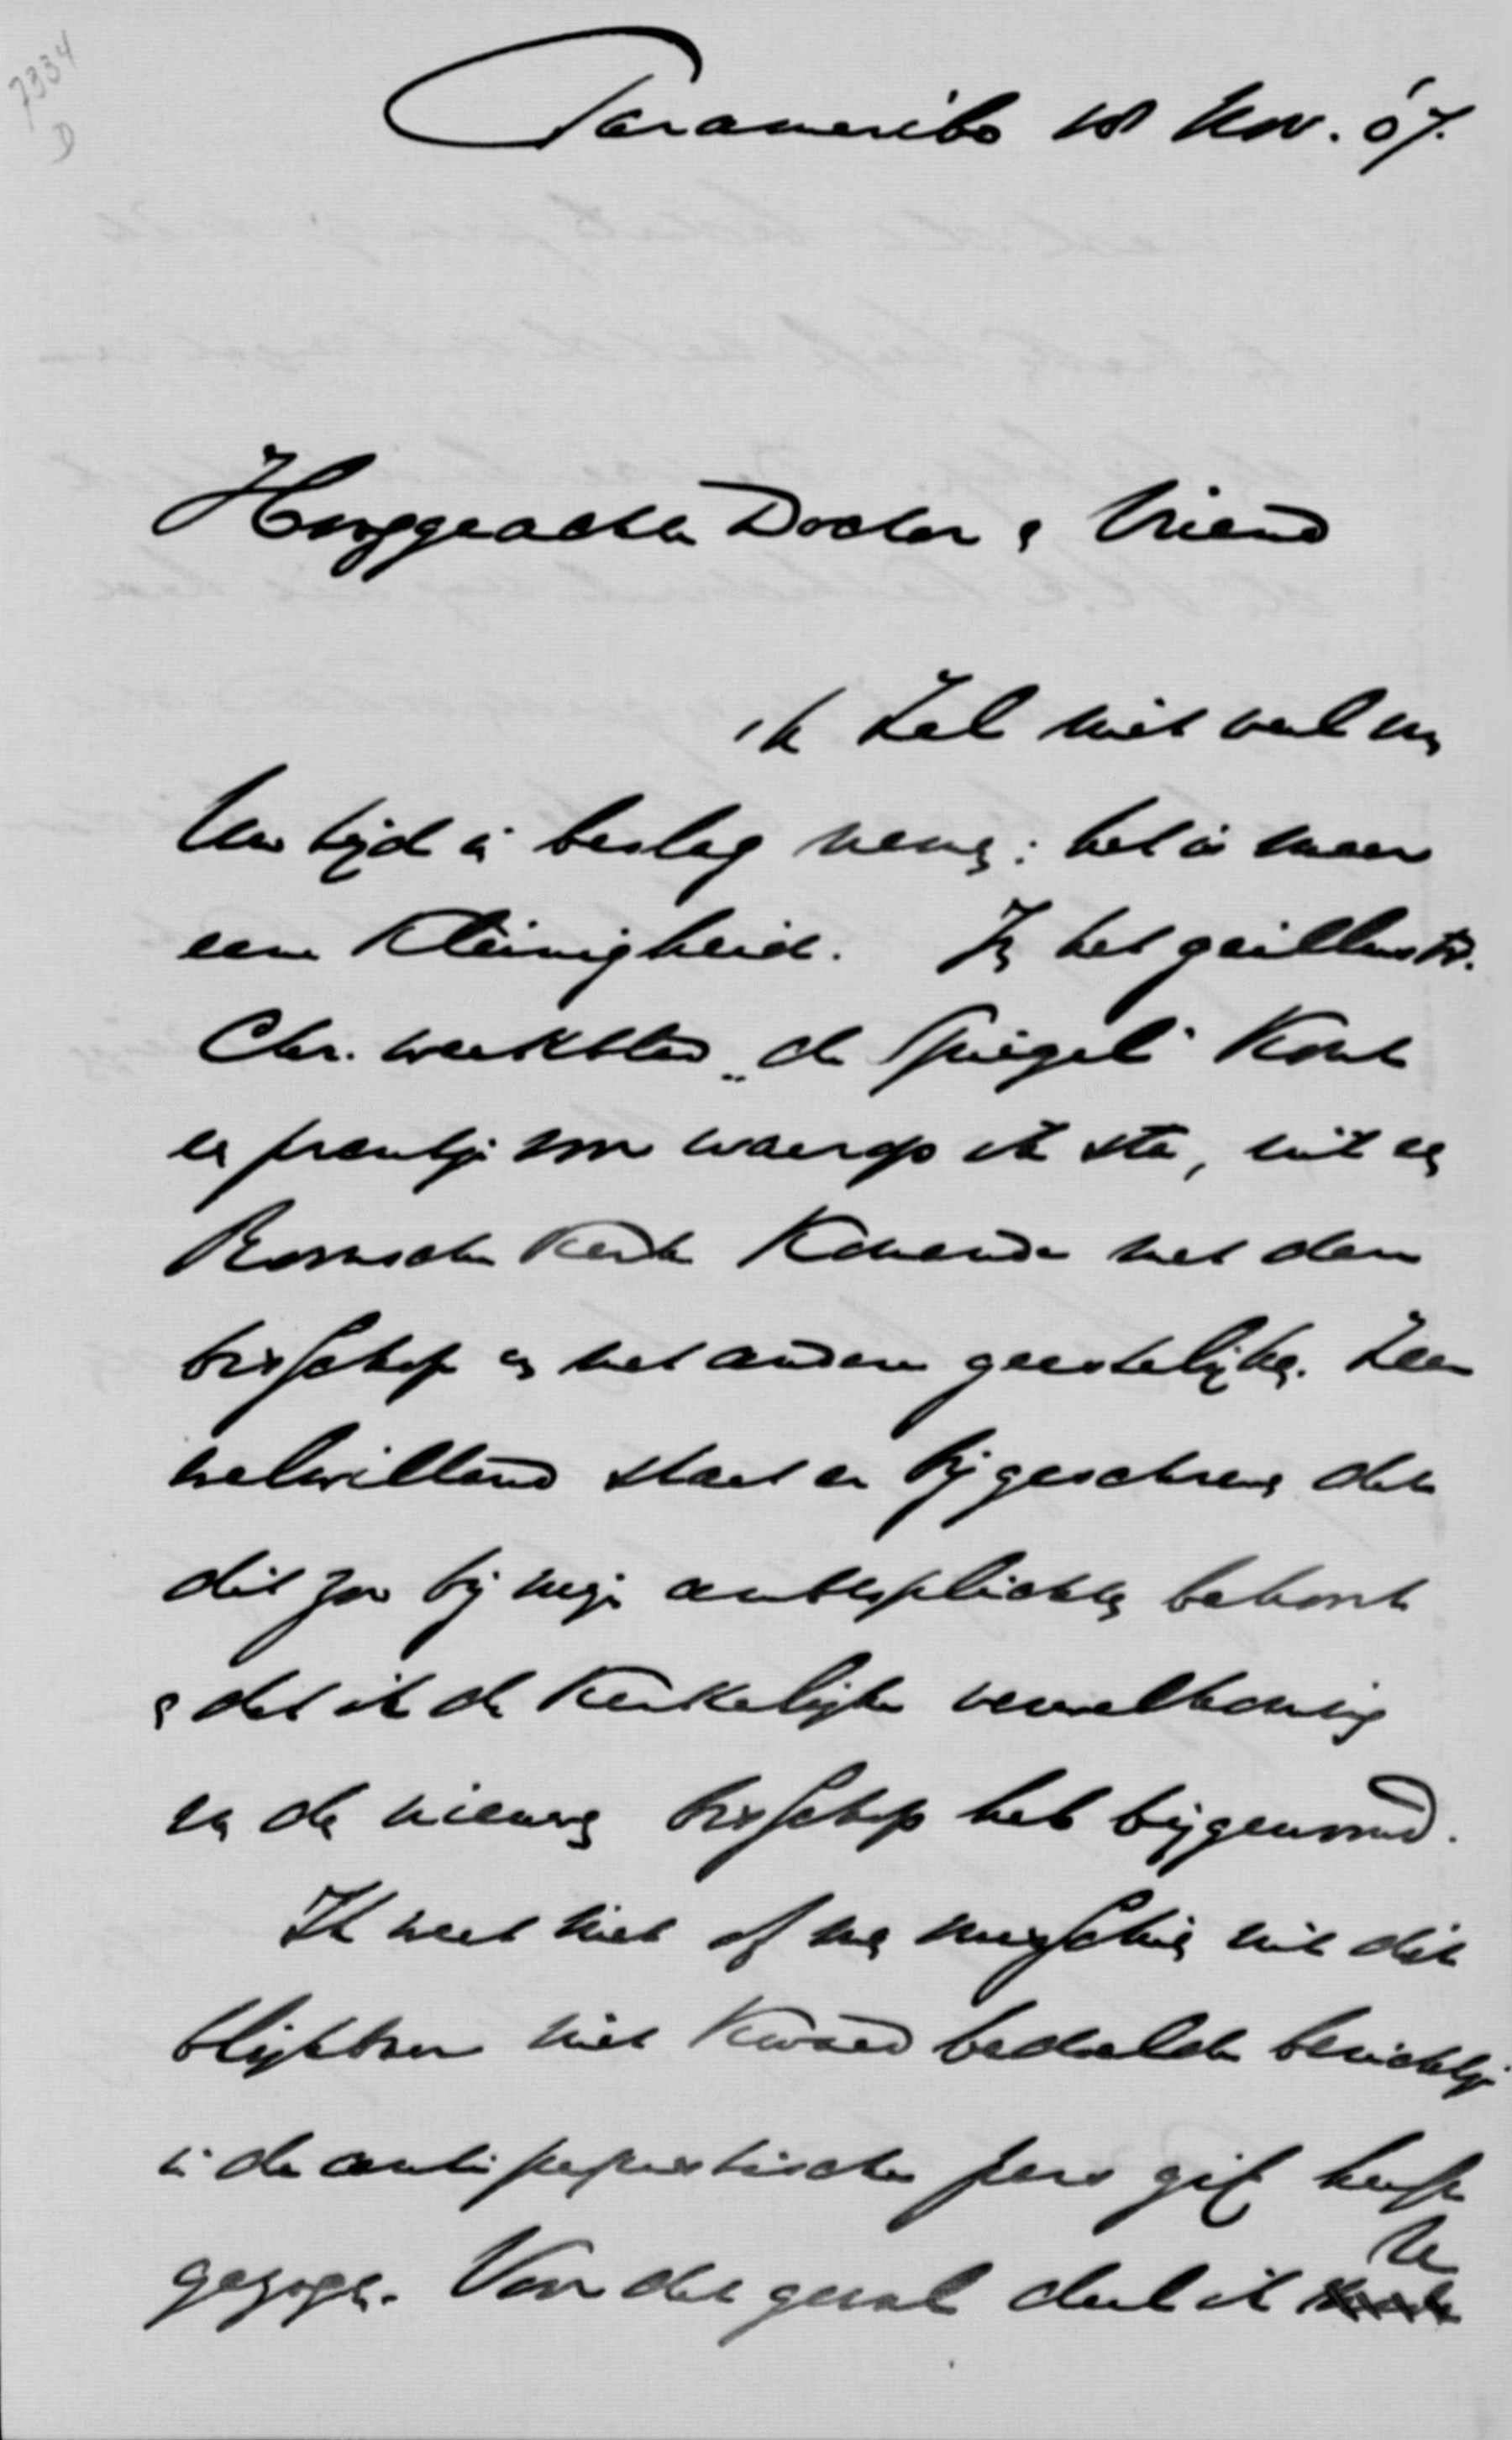 7334
D
Paramaribo 18 Nov. 07.
Hooggeachte Doctor & Vriend
Ik zal niet veel van
Uw tijd in beslag nemen: het is maar
eene kleinigheid. In het geïllustr.
Chr. weekblad "de Spiegel" komt
een prentje voor waarop ik sta, uit een
Roomsche kerk komende met den
bisschop en met andere geestelijken. Zeer
welwillend staat er bij geschreven dat
dit zoo bij mijn ambtsplichten behoort
& dat ik de kerkelijke verwelkoming
van den nieuwen bisschop heb bijgewoond.
Ik weet niet of men misschien uit dit
blijkbaar niet kwaad bedoelde berichtje
in de antipapistische pers gif heeft
gezogen. Voor dat geval deel ik U